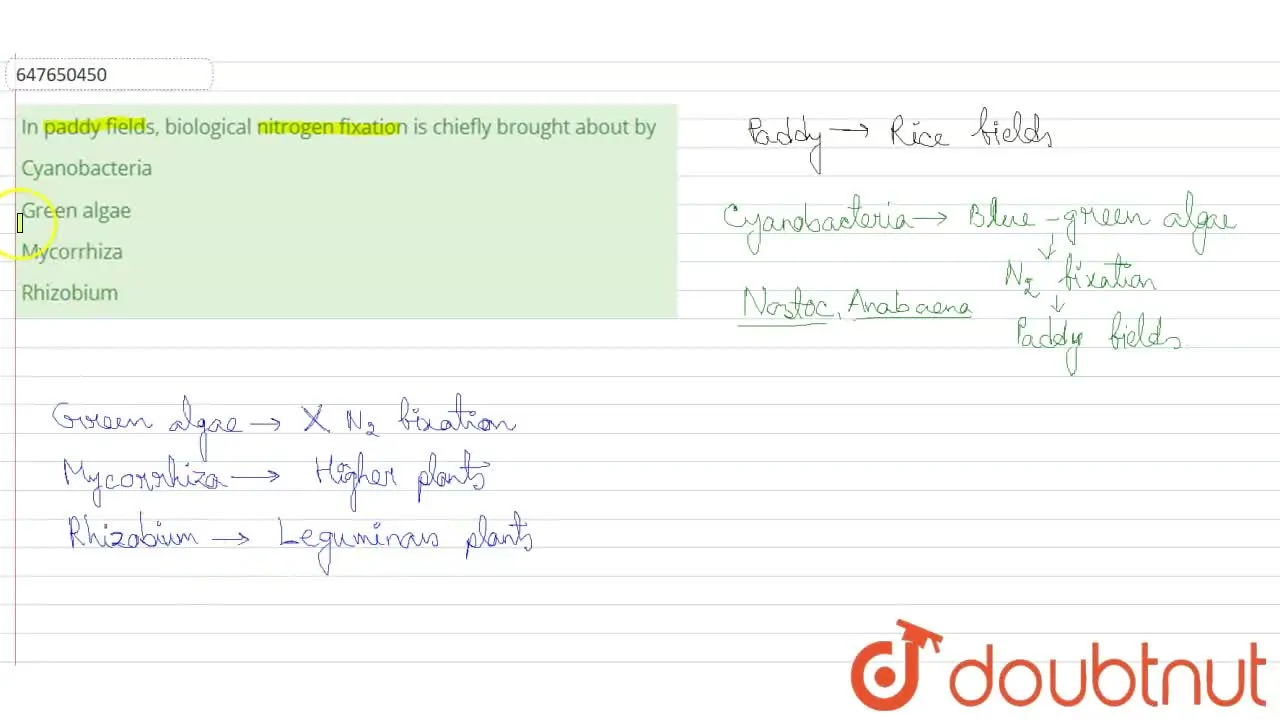 647650450
In paddy fields, biological nitrogen fixation is chiefly brought about by
Cyanobacteria
Green algae
Mycorrhiza
Rhizobium
Paddy → Rice fields
Cyanobacteria → Blue-green algae
↓
N₂ fixation
↓
Nostoc, Anabaena
Paddy fields
Green algae → X N₂ fixation
Mycorrhiza → Higher plants
Rhizobium → Leguminous plants
doubtnut